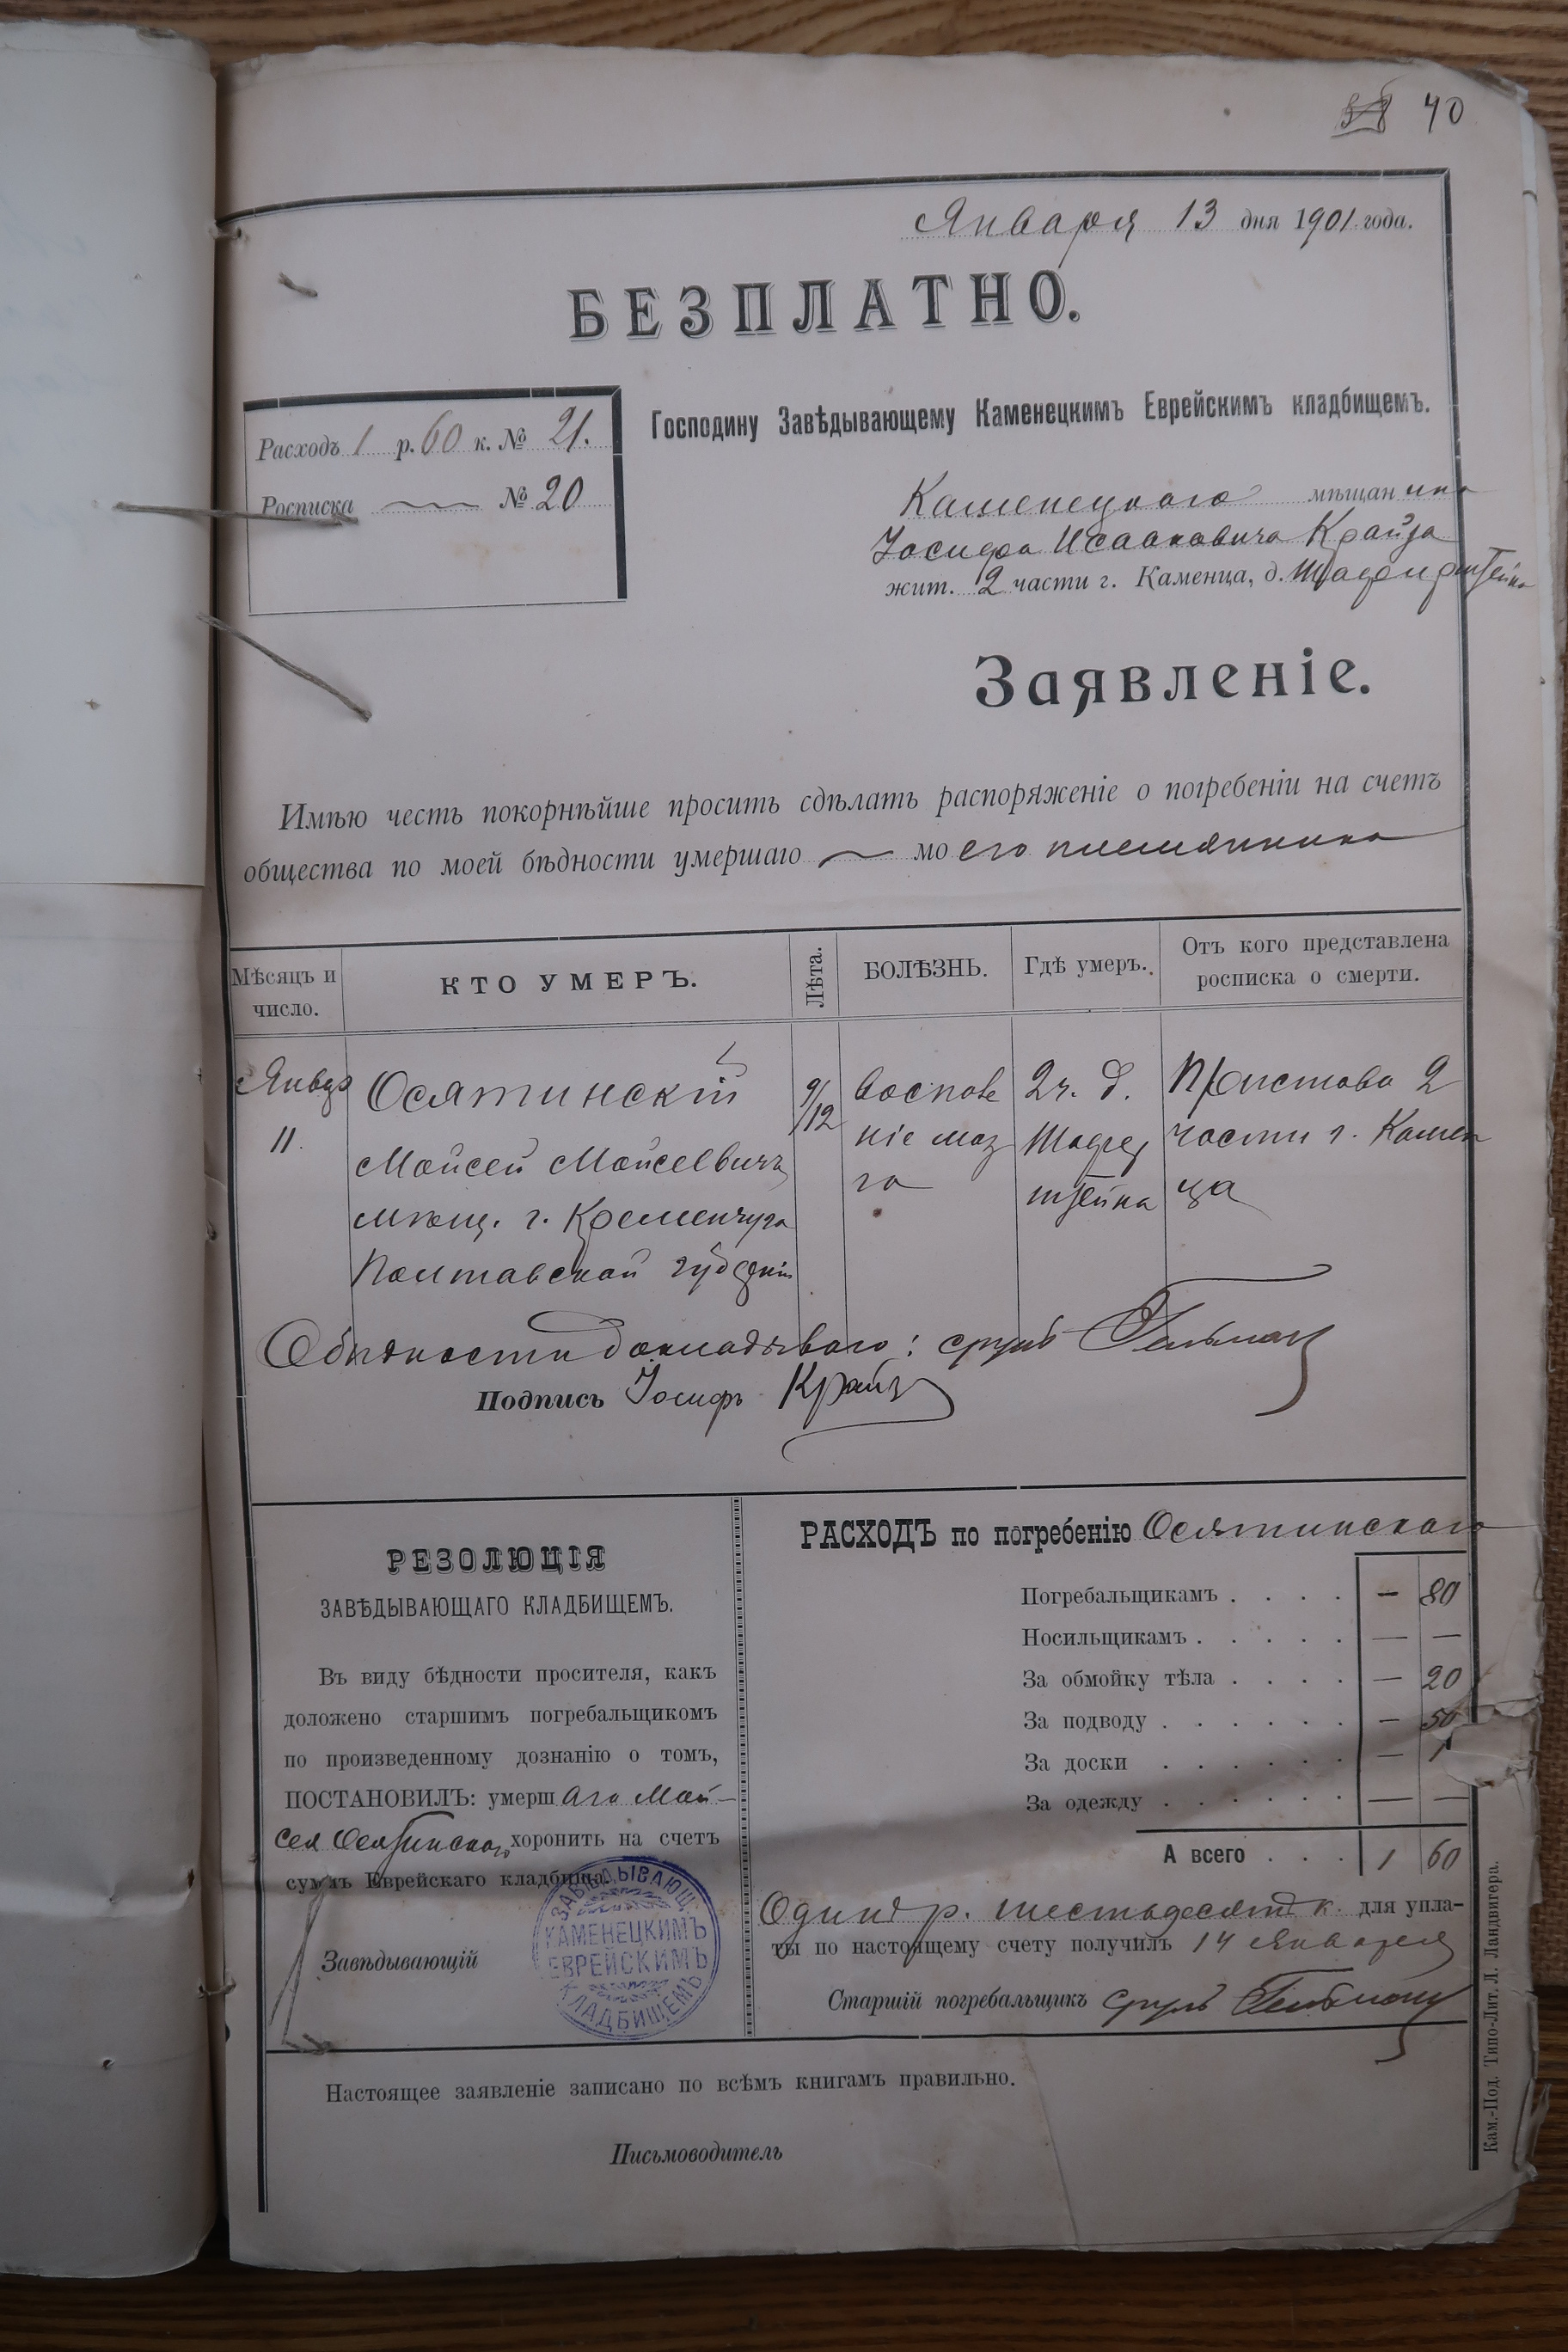 38 40
Января 13 дня 1901 года.
БЕЗПЛАТНО.
Расходъ 1 р. 60 к. № 21.
Росписка № 20
Господину Завѣдывающему Каменецкимъ Еврейскимъ кладбищемъ.
Каменецкаго мѣщанина
Іосифа Исааковича Крайза
жит. 2 части г. Каменца, д.
Заявленіе.
Имѣю честь покорнѣйше просить сдѣлать распоряженіе о погребеніи на счетъ
общества по моей бѣдности умершаго моего племянника
Мѣсяцъ и число.
КТО УМЕРЪ.
Лѣта.
БОЛѢЗНЬ.
Гдѣ умеръ.
Отъ кого представлена росписка о смерти.
Январ 11.
Осятинскій
Мойсей Мойсеевичъ
мѣщ. г. Кременчуга
Полтавской губерніи
9/12
воспале
ніе моз
га
2 ч. д.
штейна
Пристава 2
части г. Камен
ца
О бѣдности докладываю: Сруль Гельман
Подпись Іосифъ Крайз
РЕЗОЛЮЦІЯ
ЗАВѢДЫВАЮЩАГО КЛАДБИЩЕМЪ.
Въ виду бѣдности просителя, какъ
доложено старшимъ погребальщикомъ
по произведенному дознанію о томъ,
ПОСТАНОВИЛЪ: умершаго Мой-
сея Осятинскаго хоронить на счетъ
суммъ Еврейскаго кладбища.
Завѣдывающій
ЗАВѢДЫВАЮЩ.
КАМЕНЕЦКИМЪ
ЕВРЕЙСКИМЪ
КЛАДБИЩЕМЪ
РАСХОДЪ по погребенію Осятинскаго
Погребальщикамъ . . . . — 80
Носильщикамъ . . . . . — —
За обмойку тѣла . . . . — 20
За подводу . . . . . . — 50
За доски . . . . . . —
За одежду . . . . . . — —
А всего . . . 1 60
Одинъ р. шестьдесятъ к. для упла-
ты по настоящему счету получилъ 14 Января
Старшій погребальщикъ Сруль Гельман
Настоящее заявленіе записано по всѣмъ книгамъ правильно.
Письмоводитель
Кам.-Под. Типо-Лит. Л. Ландвигера.